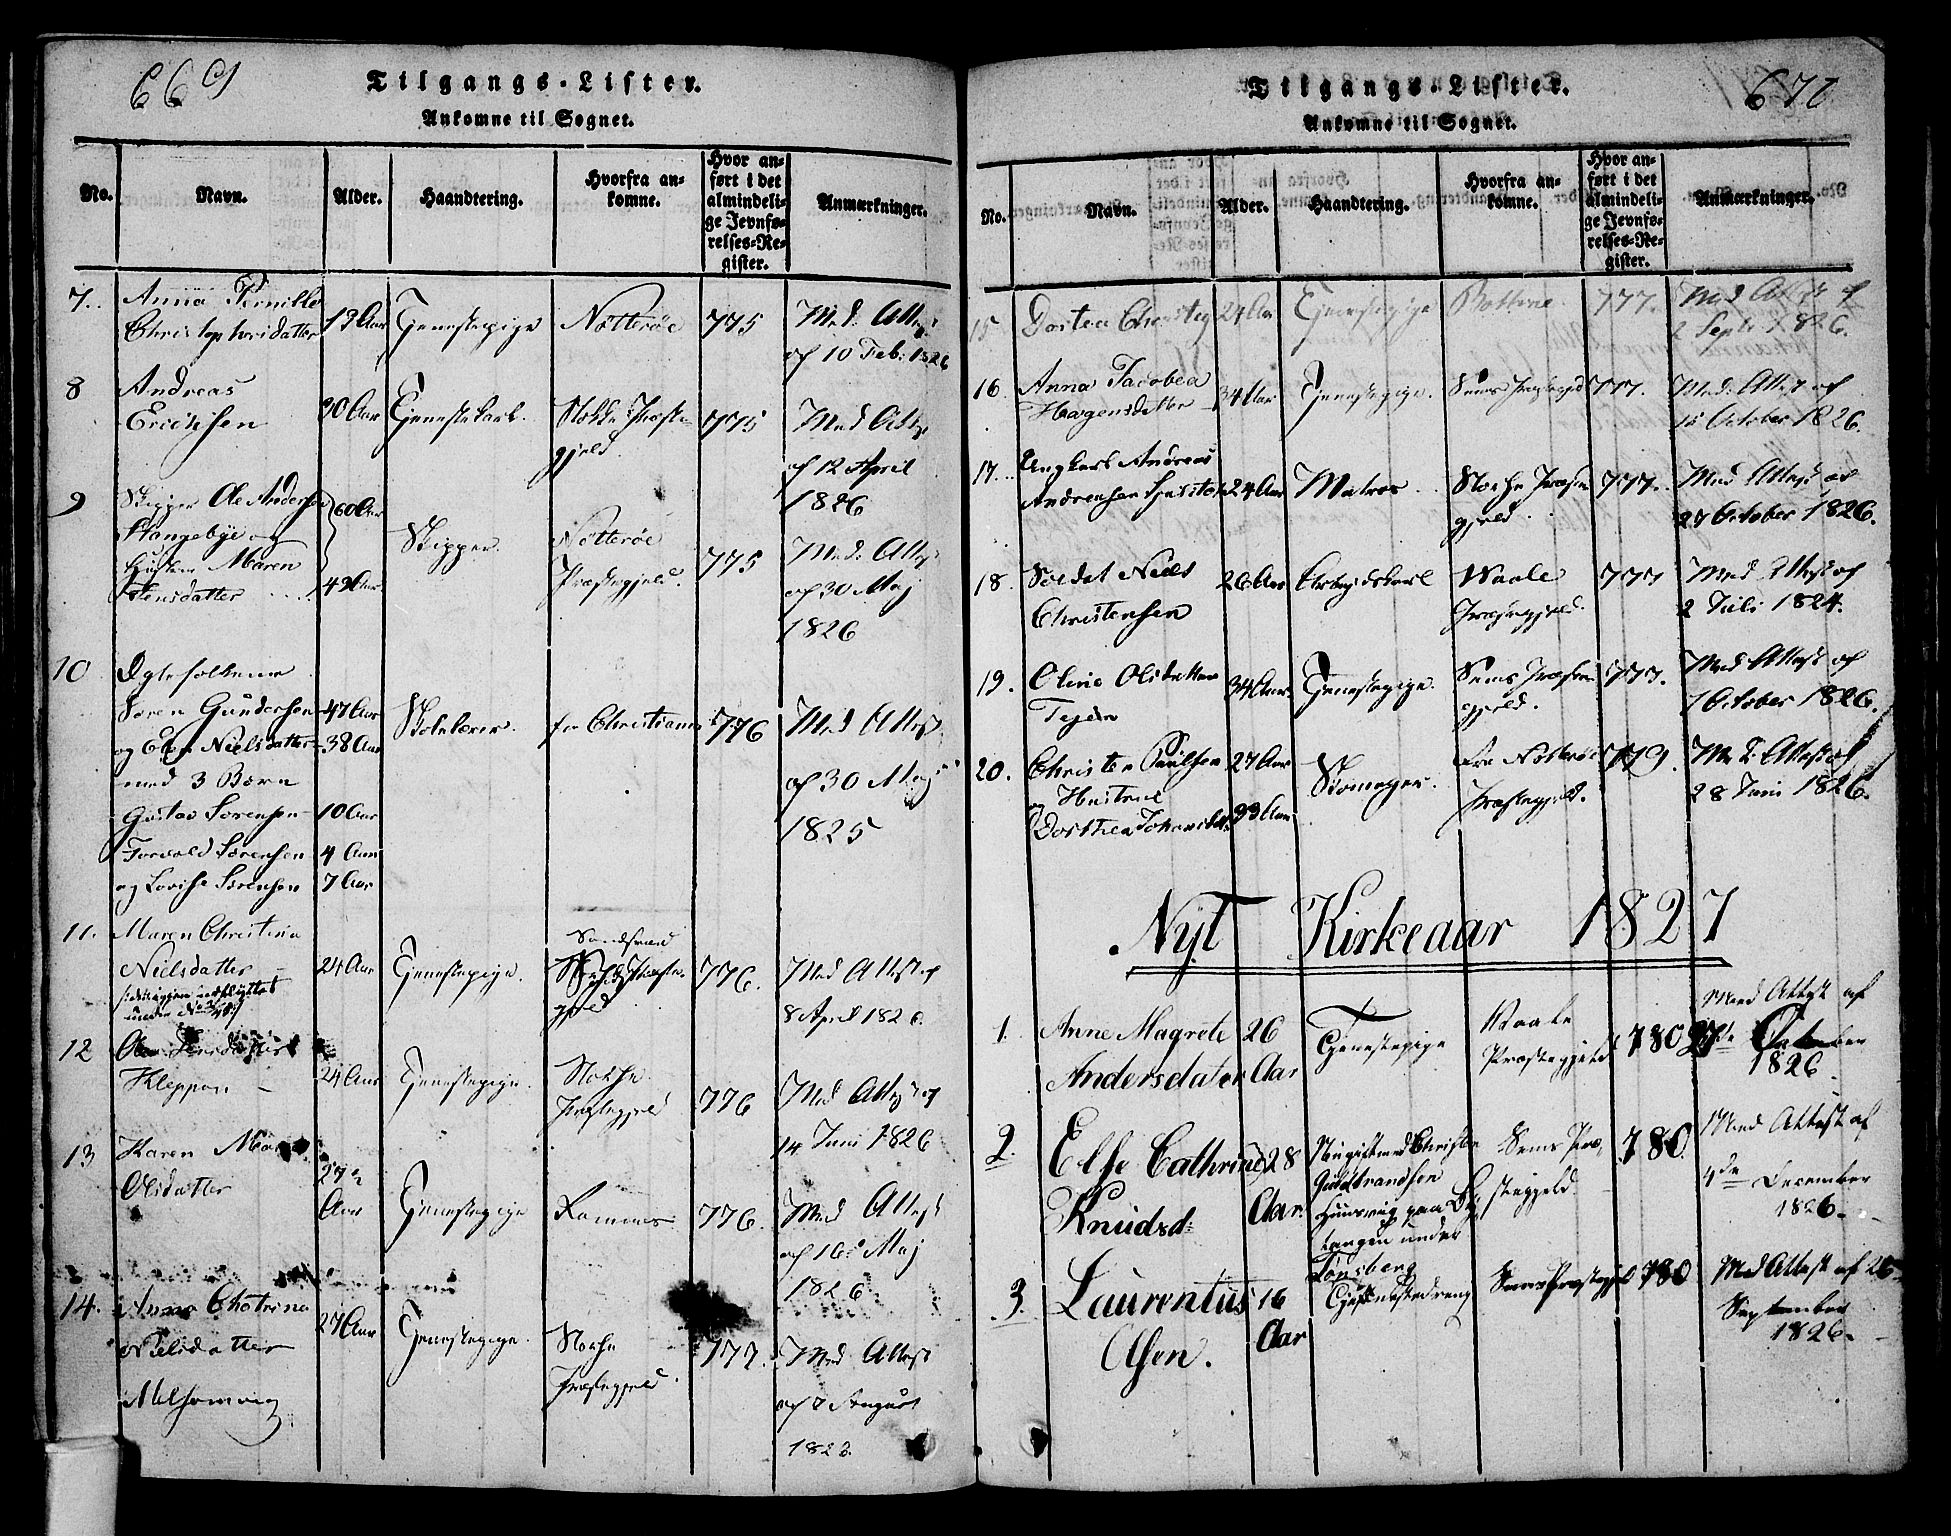 669
Tilgangs-Lister.
Ankomne til Sognet.
No. Navn. Alder. Haandtering. Hvorfra ankomne. Hvor anført i det almindelige Jevnførelses-Register. Anmærkninger.
7. Anna Pernille
Christophersdatter 19 Aar Tjenestepige Nötteröe 775 Med Attest
af 10 Feb: 1826
8 Andreas
Erichsen 20 Aar Tjenestekarl. Stokke Præste-
gjeld. 775 Med Attest
af 12 April
1826
9 Skipper Ole Andersen 60 Aar
Stangebye og
Hustru Maren
Jensdatter 49 Aar Skipper. Nötteröe
Præstegjeld. 775 Med Attest
af 30 Maj
1826
10 Ægtefolkene
Søren Gundersen 47 Aar Skolelærer. fra Christiania 776 Med Attest
og Elen Nielsdatter 38 Aar
med 3 Børn af 30 Maj
Gustav Sørensen 10 Aar 1825
Torvald Sørensen 4 Aar
og Lovise Sørensen 7 Aar
11. Maren Christina
Nielsdatter 24 Aar Tjenestepige. Sandsvær
Præste-
gjeld 776. Med Attest af
8 April 1826.
12 Jensdatter
Kleppan 24 Aar Tjenestepige. Stokke
Præstegjeld 776 Med Attest af
14 Juni 1826
13 Karen Maria
Olsdatter 27
Aar Tjenestepige Ramnes 776. Med Attest
af 16 Maj
1826
14. Anne Chatrina
Nielsdatter
Melsomvig 27 Aar Tjenestepige. Stokke
Præstegjeld. 777. Med Attest
af 7 August
1823.
670
Tilgangs-Lister.
Ankomne til Sognet.
No. Navn. Alder. Haandtering. Hvorfra ankomne. Hvor anført i det almindelige Jevnførelses-Register. Anmærkninger.
15 Dortea 24 Aar Tjenestepige Botterne 777. Med Attest af
2 Septr 1826.
16. Anna Jacobea
Hagensdatter 34 Aar Tjenestepige. Sems Præstegjeld 777. Med Attest af
15 October 1826.
17. Ungkarl Andreas
Andresen 24 Aar Matros. Stokke Præste-
gjeld. 777. Med Attest av
27 October 1826.
18. Soldat Niels
Christensen 26 Aar Arbejdskarl Waale
Præstegjeld. 777 Med Attest af
2 Juli 1824.
19. Oline Olsdatter
Tejen 34 Aar. Tjenestepige. Sems Præste-
gjeld. 777. Med Attest af
7 October 1826.
20. Christen Paulsen 27 Aar
og Hustrue
Dorthea 33 Aar Skomager. Fra Nötteröe
Præstegjeld. 779. Med Attest af
28 Juni 1826.
Nyt Kirkeaar 1827
1. Anne Magrete
Andersdater 26
Aar Tjenestepige Vaale
Præstegjeld 780 Med Attest af
27de October
1826
2. Else Cathrine
Knudsd: 28
Aar. Nygift med Christen
Guldbrandsen
Huusvug paa By-
tangen under
Tønsberg Sems Præ-
stegjeld 780. Med Attest af
4de December
1826.
3. Laurentus
Olsen. 16
Aar Tjenestedreng Sems Præstegjeld 780 Med Attest af 26
September
1826.